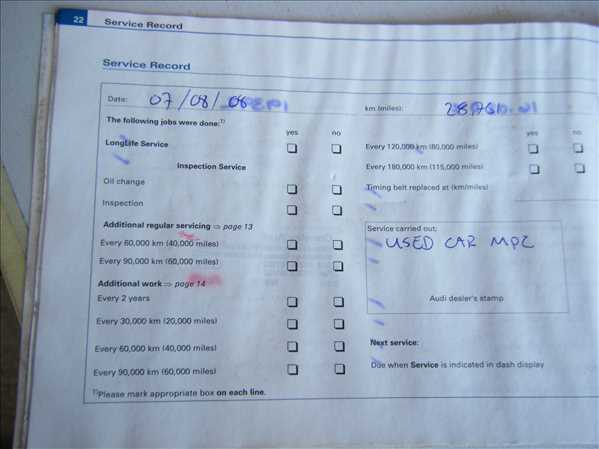 22 Service Record
Service Record
Date: 07/08/08
km (miles):
The following jobs were done:1)
yes no
yes no
LongLife Service
Every 120,000 km (80,000 miles)
Inspection Service
Every 180,000 km (115,000 miles)
Oil change
Timing belt replaced at (km/miles)
Inspection
Additional regular servicing ⇒ page 13
Service carried out:
Every 60,000 km (40,000 miles)
USED CAR MPC
Every 90,000 km (60,000 miles)
Additional work ⇒ page 14
Every 2 years
Audi dealer's stamp
Every 30,000 km (20,000 miles)
Next service:
Every 60,000 km (40,000 miles)
Due when Service is indicated in dash display
Every 90,000 km (60,000 miles)
1)Please mark appropriate box on each line.